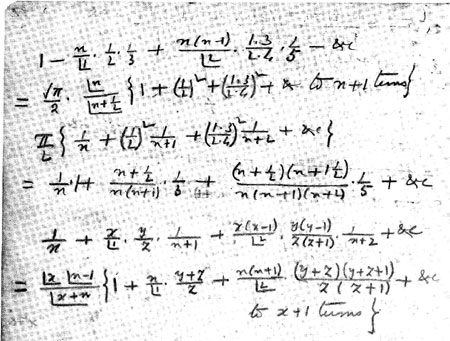 1 - n/⌊1 · 1/2 · 1/3 + n(n-1)/⌊2 · 1·3/2·4 · 1/5 - &c
= √π/2 · ⌊n/⌊n+½ {1 + (½)² + (1·3/2·4)² + & to n+1 terms}
π/2 {1/n + (½)² 1/n+1 + (1·3/2·4)² 1/n+2 + &c}
= 1/n · 1 + n+½/n(n+1) · 1/3 + (n+½)(n+1½)/n(n+1)(n+2) · 1/5 + &c
1/n + x/⌊1 · y/z · 1/n+1 + x(x-1)/⌊2 · y(y-1)/z(z+1) · 1/n+2 + &c
= ⌊x ⌊n-1/⌊x+n {1 + n/⌊1 · y+z/z + n(n+1)/⌊2 · (y+z)(y+z+1)/z(z+1) + &c
to x+1 terms}